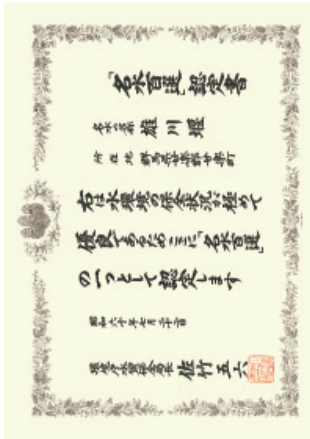 「名水百選」認定書
名水の名称 雄川堰
所在地 群馬県甘楽郡甘楽町
右は水環境の保全状況が極めて
優良であるためここに「名水百選」
の一つとして認定します
昭和六十年七月二十二日
環境庁水質保全局長 佐竹五六